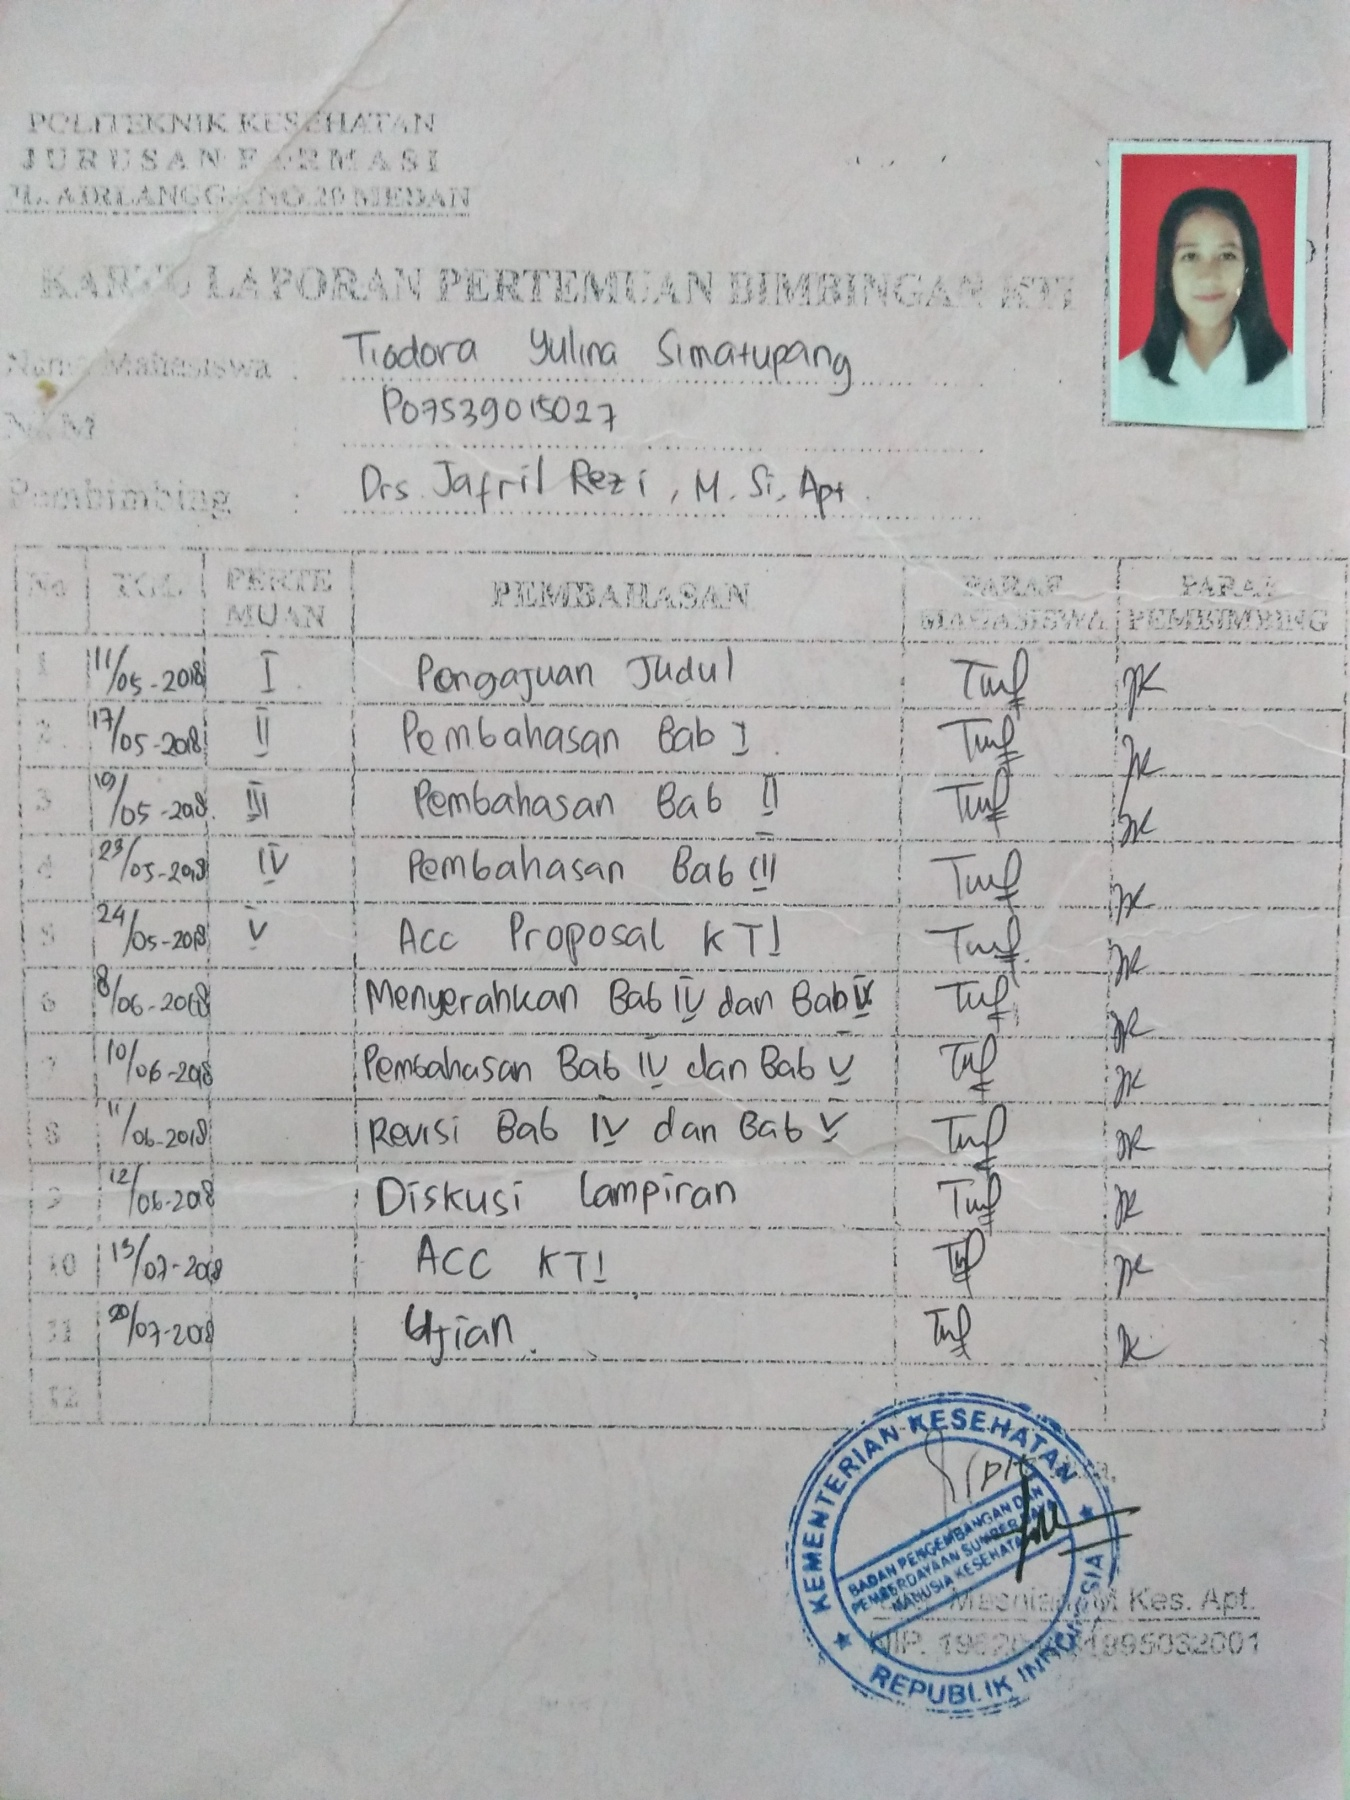 POLITEKNIK KESEHATAN
JURUSAN FARMASI
JL. AIRLANGGA NO.20 MEDAN
KARTU LAPORAN PERTEMUAN BIMBINGAN KTI
Nama Mahasiswa : Tiodora Yulina Simatupang
NIM : P07539015027
Pembimbing : Drs. Jafril Rezi, M. Si, Apt.
No TGL PERTE MUAN PEMBAHASAN PARAF MAHASISWA PARAF PEMBIMBING
1 11/05-2018 I Pengajuan Judul
2 17/05-2018 II Pembahasan Bab I
3 19/05-2018 III Pembahasan Bab II
4 23/05-2018 IV Pembahasan Bab III
5 24/05-2018 V Acc Proposal KTI
6 8/06-2018 Menyerahkan Bab IV dan Bab V
7 10/06-2018 Pembahasan Bab IV dan Bab V
8 11/06-2018 Revisi Bab IV dan Bab V
9 12/06-2018 Diskusi Lampiran
10 13/07-2018 ACC KTI
11 20/07-2018 Ujian
12
KEMENTERIAN KESEHATAN
BADAN PENGEMBANGAN DAN
PEMBERDAYAAN SUMBER DAYA
MANUSIA KESEHATAN
REPUBLIK INDONESIA
M Kes. Apt.
NIP.